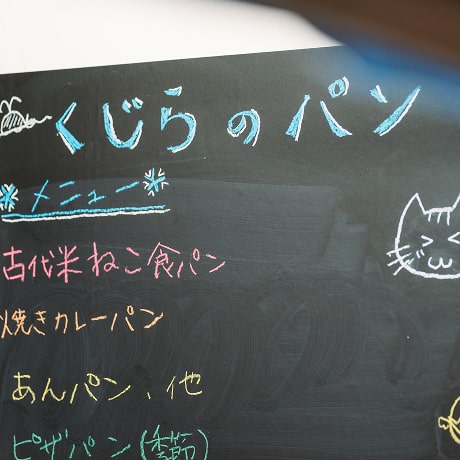 くじらのパン
*メニュー*
古代米ねこ食パン
焼きカレーパン
あんパン、他
ピザパン(季節)